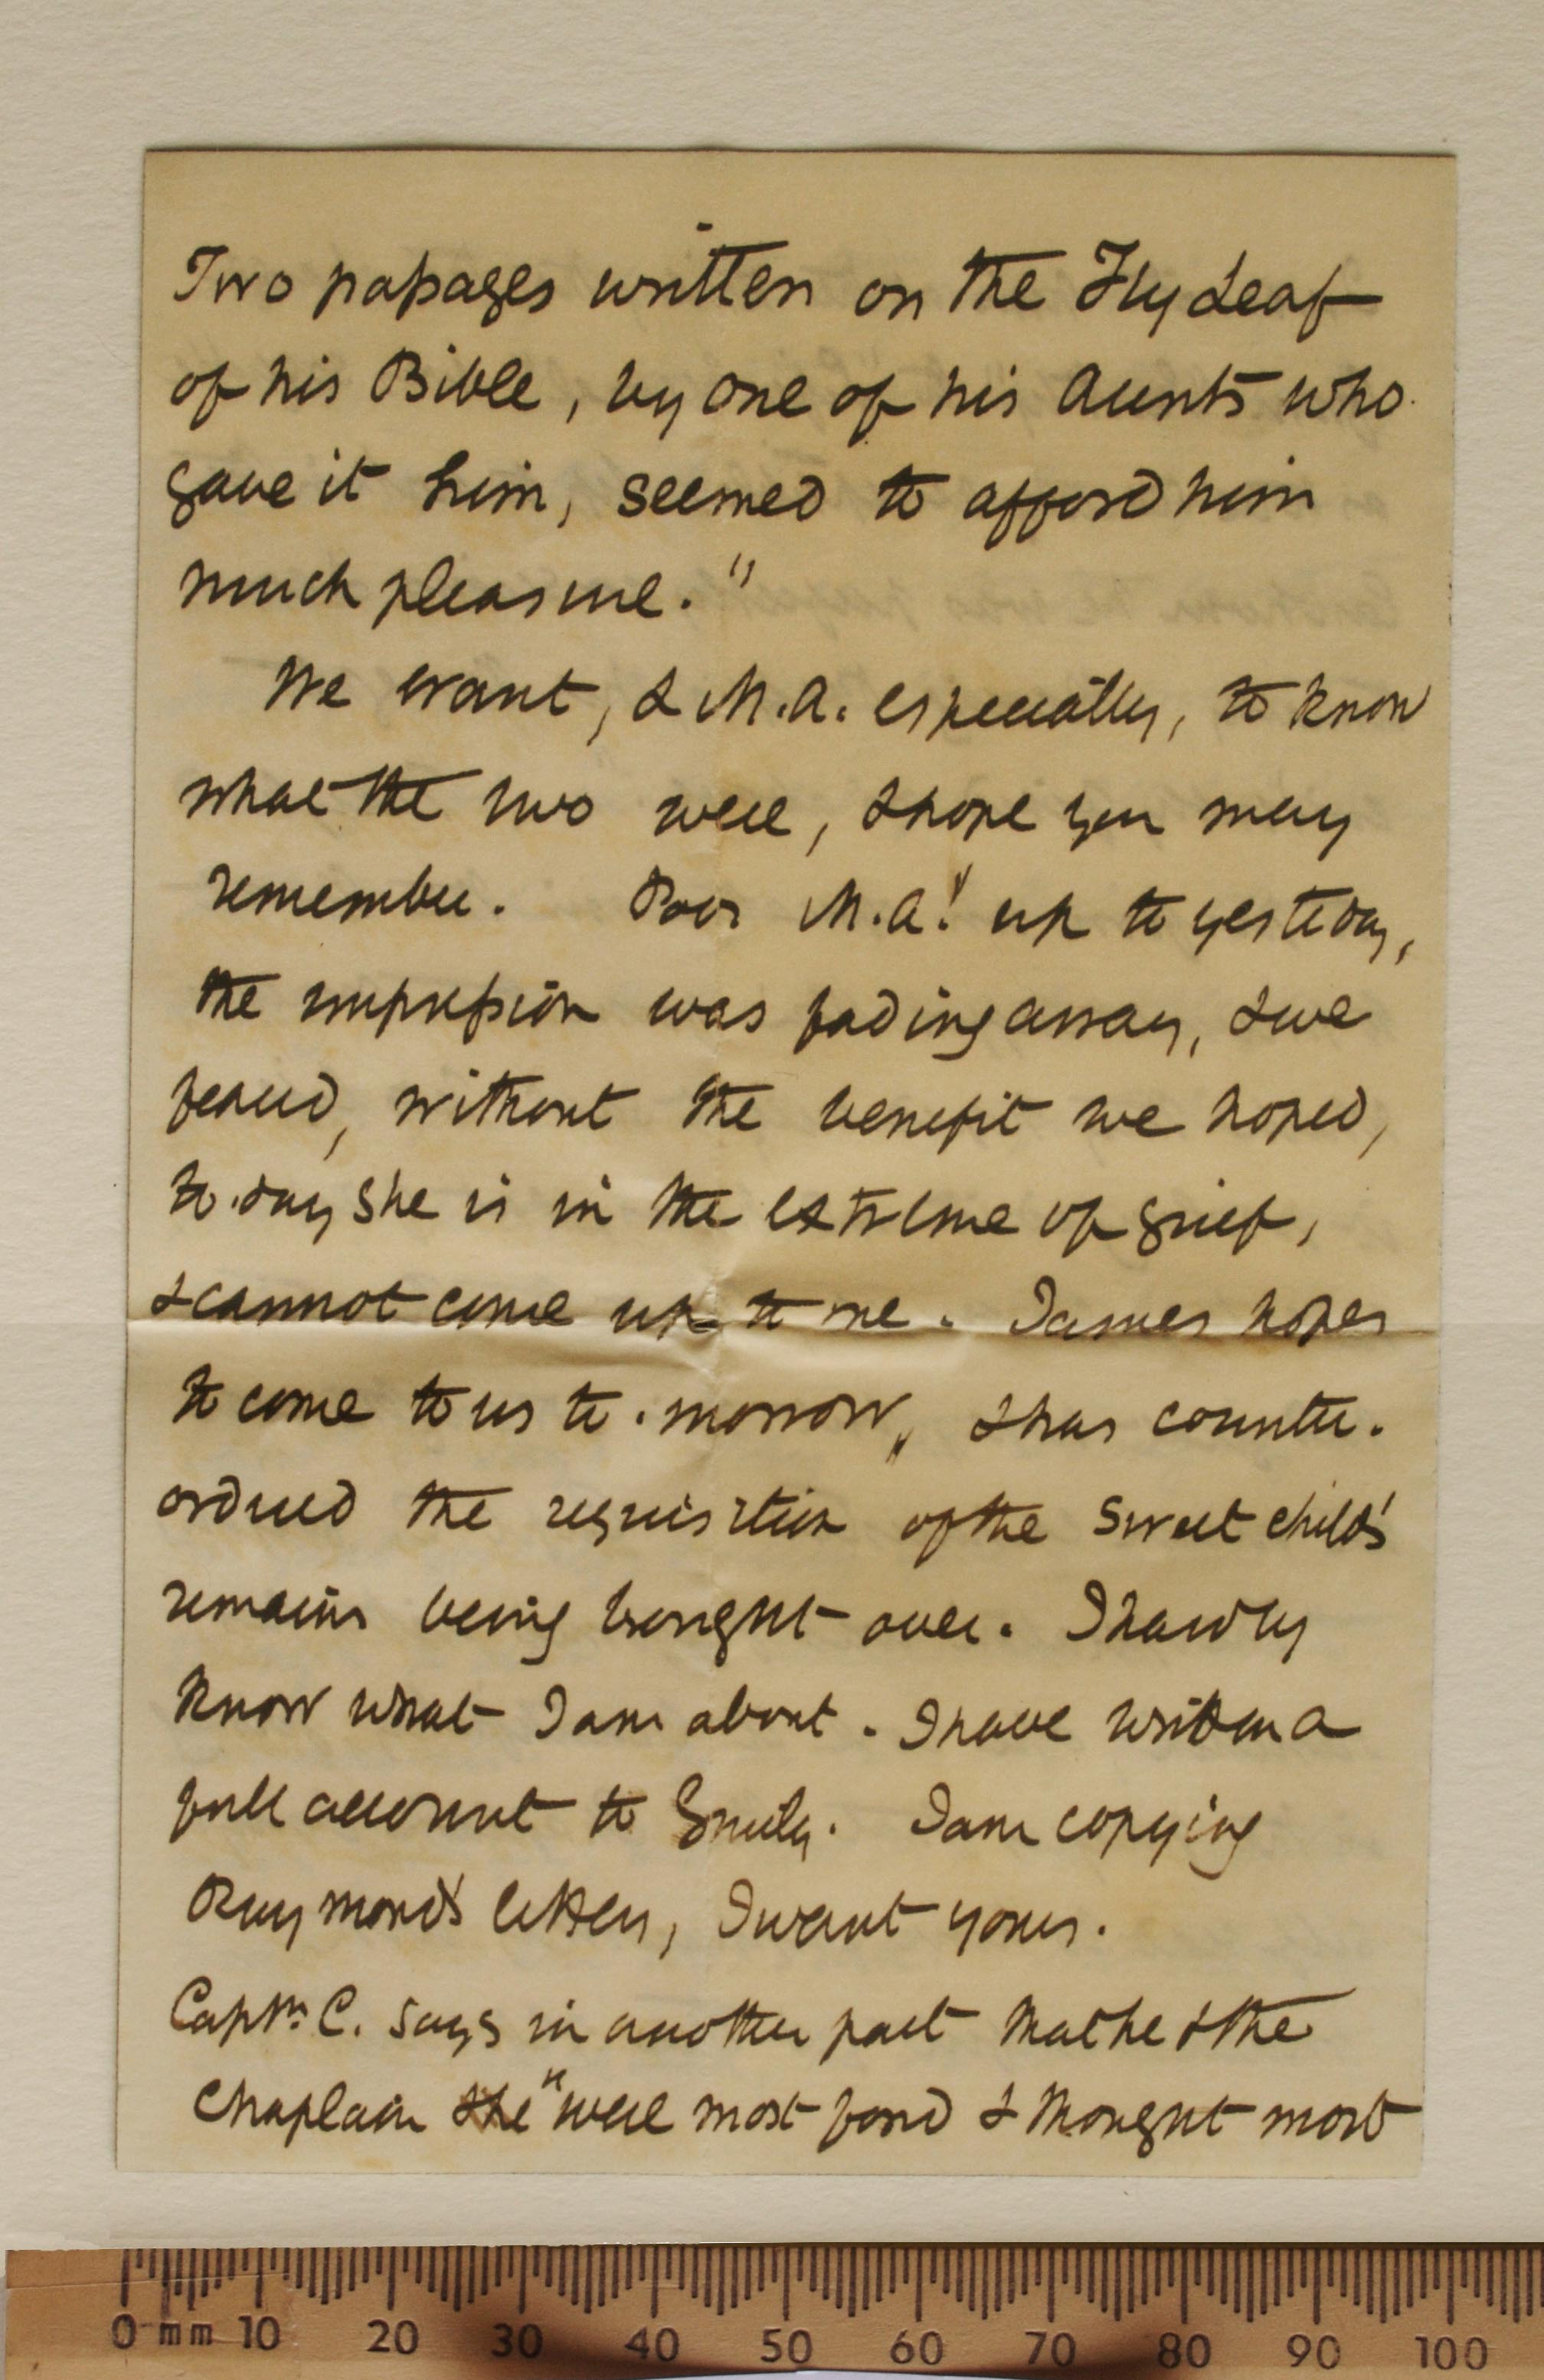 Two passages written on the Fly Leaf
of his Bible, by one of his Aunts who
gave it him, seemed to afford him
much pleasure."
We want, & M.A. especially, to know
what the two were, & hope you may
remember. Poor M.A! up to yesterday,
the impression was fading away, & we
feared, without the benefit we hoped,
to.day she is in the extreme of grief,
& cannot come up to me. James hopes
to come to us to.morrow, & has counter.
ordered the requisition of the sweet child's
remains being brought over. I hardly
know what I am about. I have written a
full account to Emily. I am copying
Raymond's letters, I want yours.
Captn. C. says in another part that he & the
Chaplain the "were most fond & thought most
0 mm 10 20 30 40 50 60 70 80 90 100